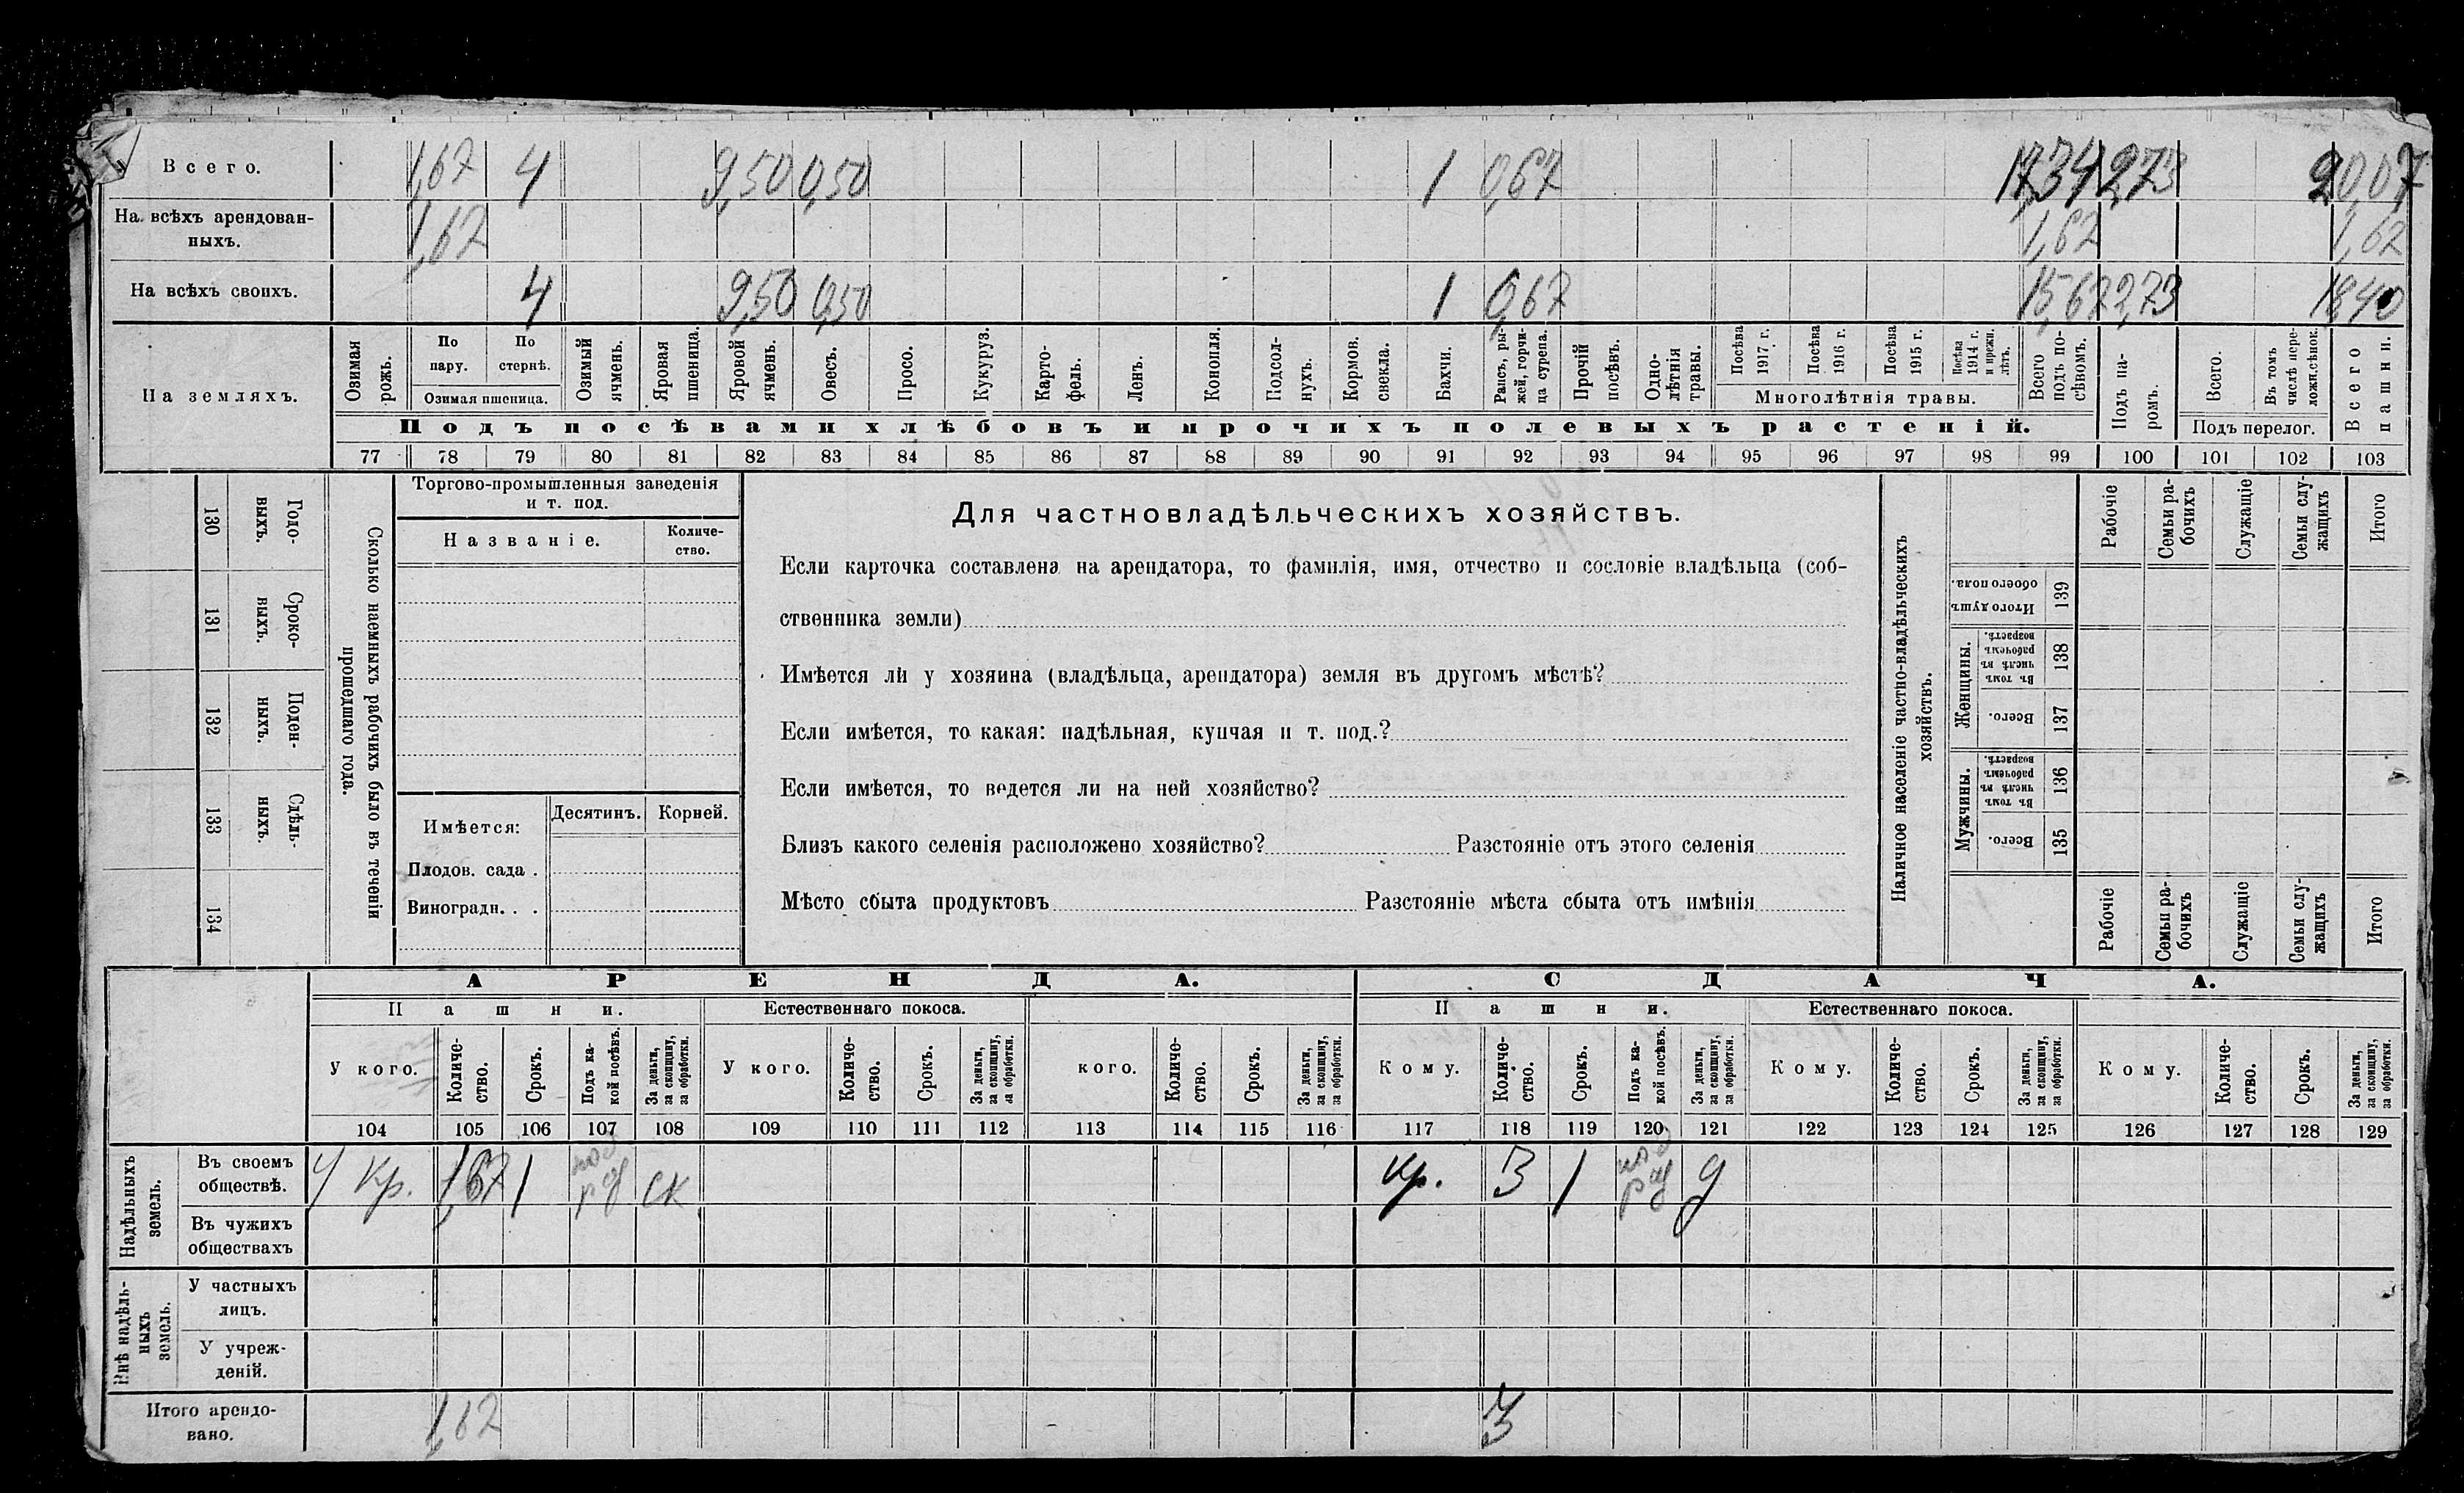 Всего. 1,67 4 9,50 0,50 1 0,67 17,34 2,73 20,07
На всѣхъ арендован-
ныхъ. 1,67 1,67 1,67
На всѣхъ своихъ. 4 9,50 0,50 1 0,67 15,67 2,73 18,40
На земляхъ.
Озимая рожь.
По пару.
По стернѣ.
Озимая пшеница.
Озимый ячмень.
Яровая пшеница.
Яровой ячмень.
Овесъ.
Просо.
Кукуруз.
Карто-
фель.
Ленъ.
Конопля.
Подсол-
нухъ.
Кормов. свекла.
Бахчи.
Рапсъ, ры-
жей, горчи-
ца сурепа.
Прочій посѣвъ.
Одно-
лѣтнія травы.
Посѣва 1917 г.
Посѣва 1916 г.
Посѣва 1915 г.
Посѣва 1914 г. и прежн. лѣтъ.
Многолѣтнія травы.
Всего подъ по-
сѣвомъ.
Подъ па-
ромъ.
Всего.
Въ томъ числѣ пере-
ложн. сѣнок.
Подъ перелог.
Всего пашни.
Подъ посѣвами хлѣбовъ и прочихъ полевыхъ растеній.
77 78 79 80 81 82 83 84 85 86 87 88 89 90 91 92 93 94 95 96 97 98 99 100 101 102 103
130 Годо-
ныхъ.
131 Сроко-
ныхъ.
132 Поден-
ныхъ.
133 Сдѣль-
ныхъ.
134
Сколько наемныхъ рабочихъ было въ теченіи
прошедшаго года.
Торгово-промышленныя заведенія
и т. под.
Названіе.
Количе-
ство.
Имѣется:
Десятинъ. Корней.
Плодов. сада .
Виноградн. . .
Для частновладѣльческихъ хозяйствъ.
Если карточка составлена на арендатора, то фамилія, имя, отчество и сословіе владѣльца (соб-
ственника земли)
Имѣется ли у хозяина (владѣльца, арендатора) земля въ другомъ мѣстѣ?
Если имѣется, то какая: надѣльная, купчая и т. под.?
Если имѣется, то ведется ли на ней хозяйство?
Близъ какого селенія расположено хозяйство? Разстояніе отъ этого селенія
Мѣсто сбыта продуктовъ Разстояніе мѣста сбыта отъ имѣнія
Наличное населеніе частно-владѣльческихъ
хозяйствъ.
Рабочіе
Семьи ра-
бочихъ
Служащіе
Семьи слу-
жащихъ
Итого
Итого душъ обоего пола. 139
Женщины.
Въ томъ числѣ въ рабочемъ возрастѣ. 138
Всего. 137
Мужчины.
Въ томъ числѣ въ рабочемъ возрастѣ. 136
Всего. 135
Рабочіе
Семьи ра-
бочихъ
Служащіе
Семьи слу-
жащихъ
Итого
АРЕНДА. СДАЧА.
Пашни. Естественнаго покоса. Пашни. Естественнаго покоса.
У кого.
Количе-
ство.
Срокъ.
Подъ ка-
кой посѣвъ.
За деньги,
за скопщину,
за обработки.
У кого.
Количе-
ство.
Срокъ.
За деньги,
за скопщину,
за обработки.
кого.
Количе-
ство.
Срокъ.
За деньги,
за скопщину,
за обработки.
Кому.
Количе-
ство.
Срокъ.
Подъ ка-
кой посѣвъ.
За деньги,
за скопщину,
за обработки.
Кому.
Количе-
ство.
Срокъ.
За деньги,
за скопщину,
за обработки.
Кому.
Количе-
ство.
Срокъ.
За деньги,
за скопщину,
за обработки.
104 105 106 107 108 109 110 111 112 113 114 115 116 117 118 119 120 121 122 123 124 125 126 127 128 129
Надѣльныхъ
земель.
Въ своемъ
обществѣ. У Кр. 1,67 1 ск Кр. 3 1 д
Въ чужихъ
обществахъ
Внѣ надѣль-
ныхъ
земель.
У частныхъ
лицъ.
У учреж-
деній.
Итого арендо-
вано. 1,67 3